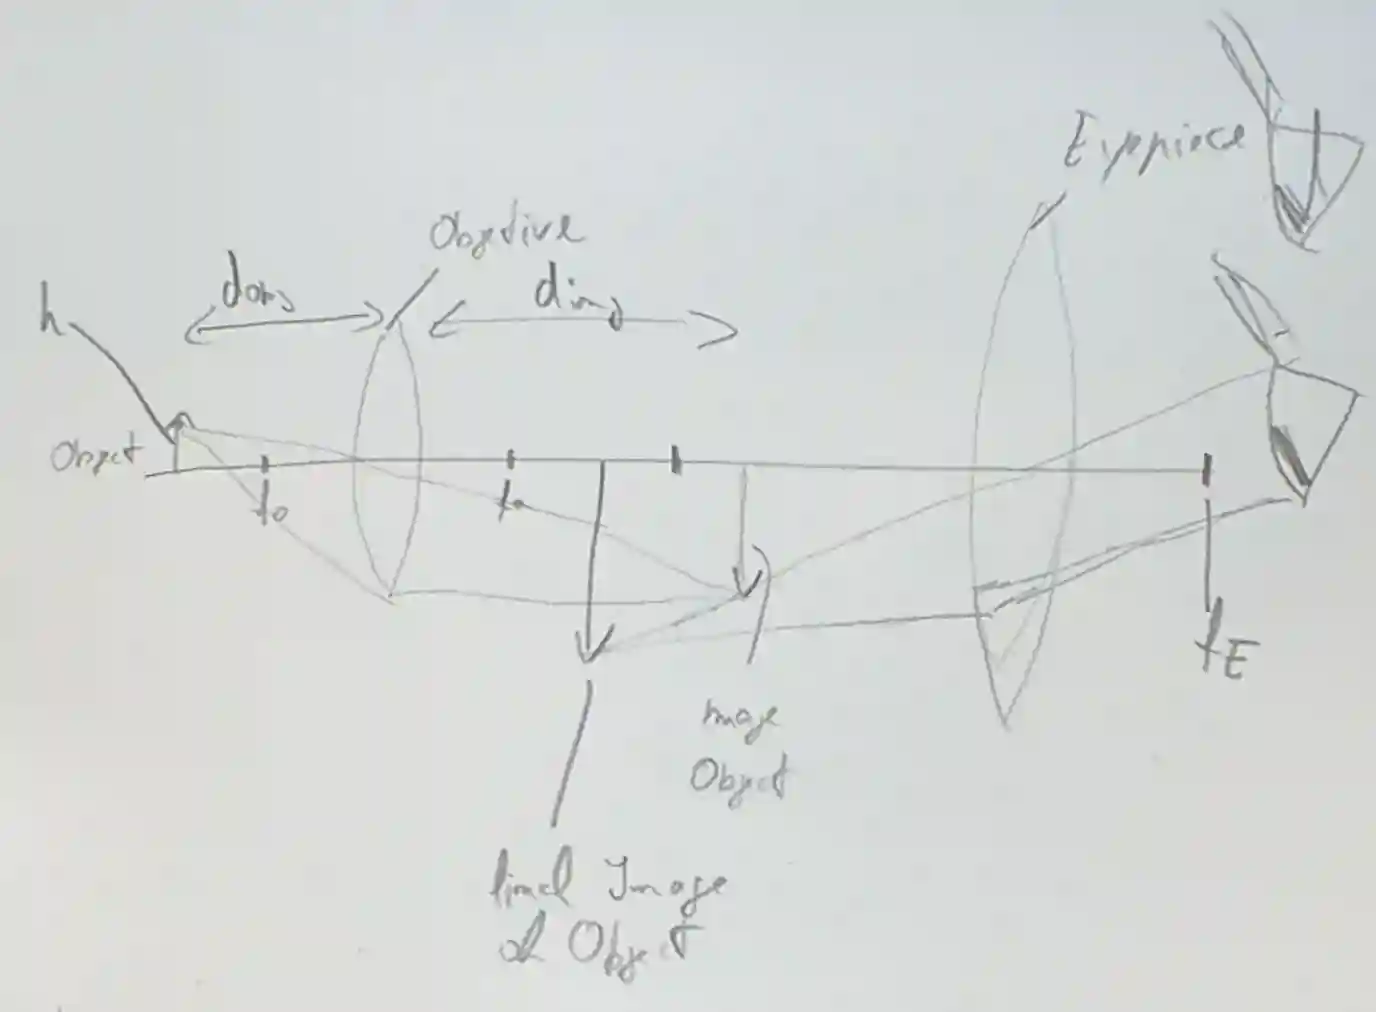 Eyepiece
Objective
dobj
dim
h
Object
fo
fo
fE
Image
Object
final Image
of Object